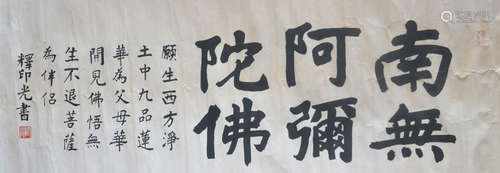 南無
阿彌
陀佛
願生西方淨
土中九品蓮
華為父母華
開見佛悟無
生不退菩薩
為伴侶
釋印光書